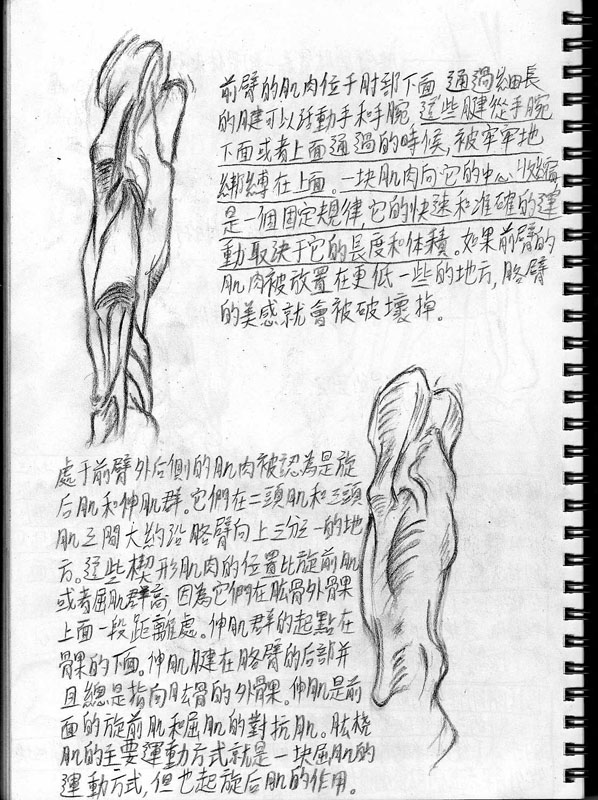 前臂的肌肉位于肘部下面 通過細長
的腱可以活動手和手腕 這些腱從手腕
下面或者上面通過的時候, 被牢牢地
綁縛在上面。一块肌肉向它的中心收縮
是一個固定規律, 它的快速和准確的運
動取決于它的長度和体積。如果前臂的
肌肉被放置在更低一些的地方, 胳臂
的美感就會被破壞掉。
處于前臂外后側的肌肉被認為是旋
后肌和伸肌群。它們在二頭肌和三頭
肌之間大約沿胳臂向上三分之一的地
方。這些楔形肌肉的位置比旋前肌
或者屈肌群高, 因為它們在肱骨外骨果
上面一段距離處。伸肌群的起點在
骨果的下面。伸肌腱在胳臂的后部并
且總是指向肱骨的外骨果。伸肌是前
面的旋前肌和屈肌的對抗肌。肱桡
肌的主要運動方式就是一块屈肌的
運動方式, 但也起旋后肌的作用。